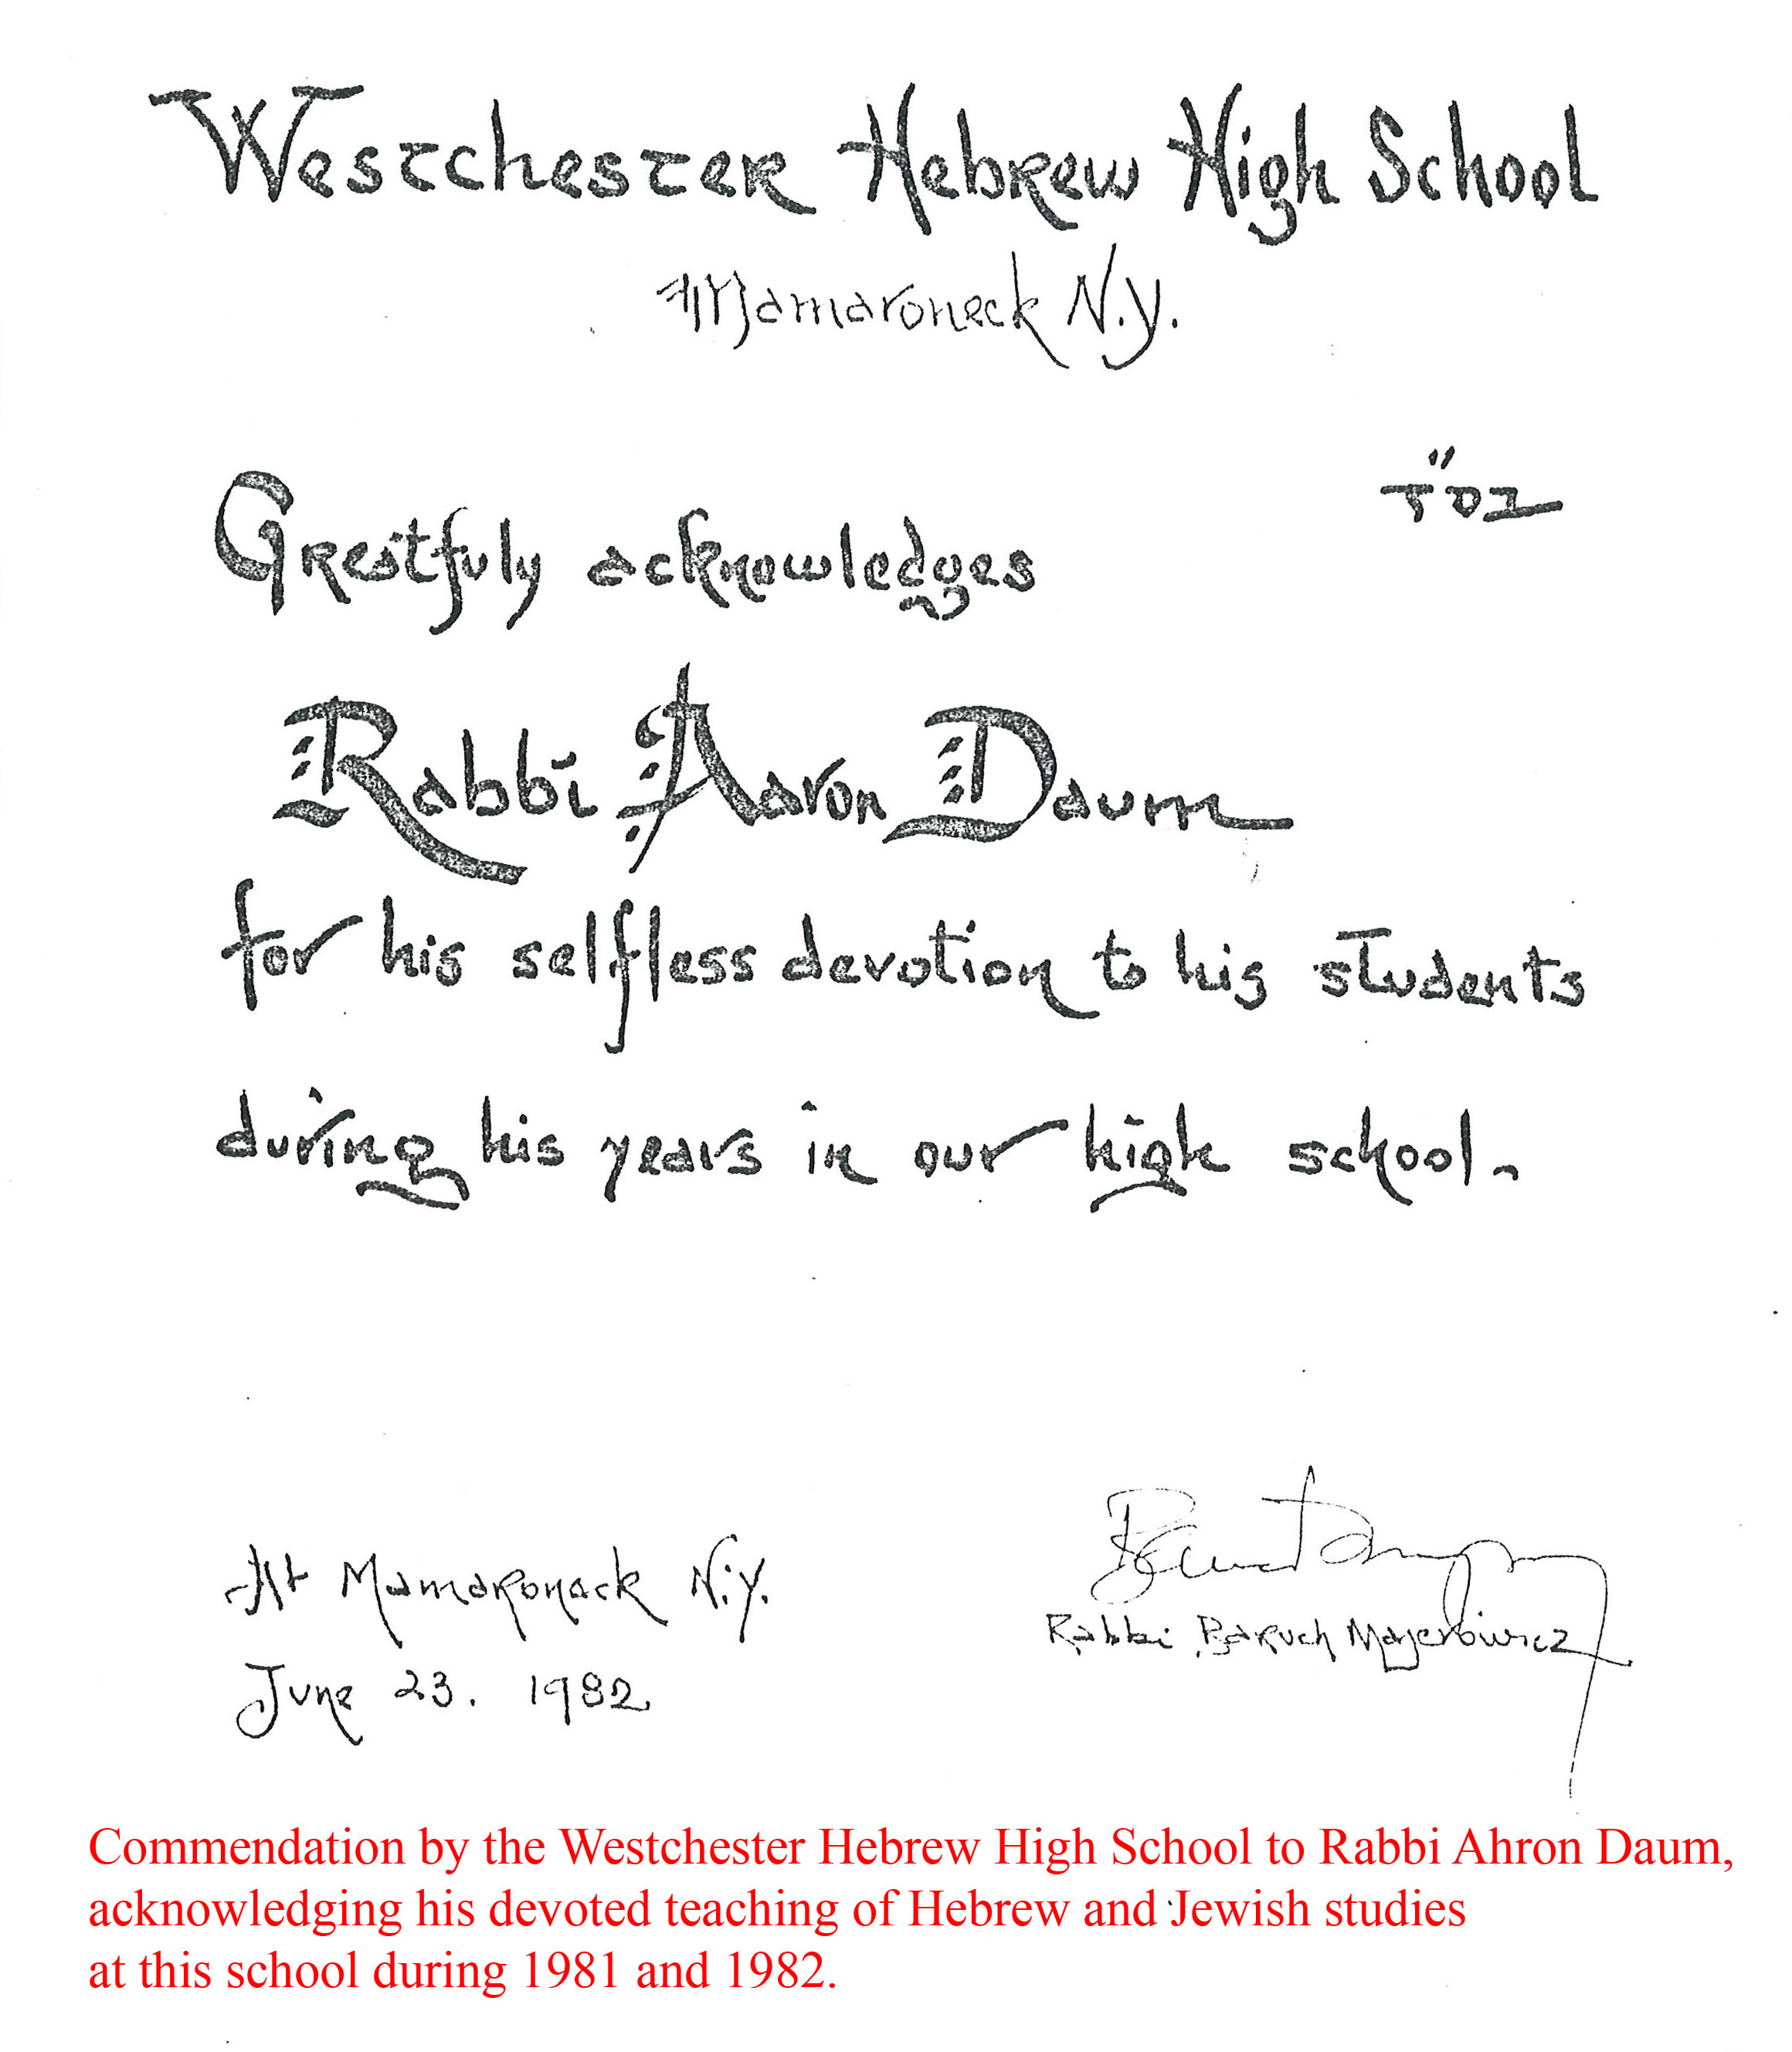 Westchester Hebrew High School
Mamaroneck N.Y.
בס"ד
Greatfuly acknowledges
Rabbi Aaron Daum
for his selfless devotion to his students
during his years in our high school.
At Mamaroneck N.Y.
Rabbi Baruch Mayerowicz
June 23. 1982
Commendation by the Westchester Hebrew High School to Rabbi Ahron Daum,
acknowledging his devoted teaching of Hebrew and Jewish studies
at this school during 1981 and 1982.